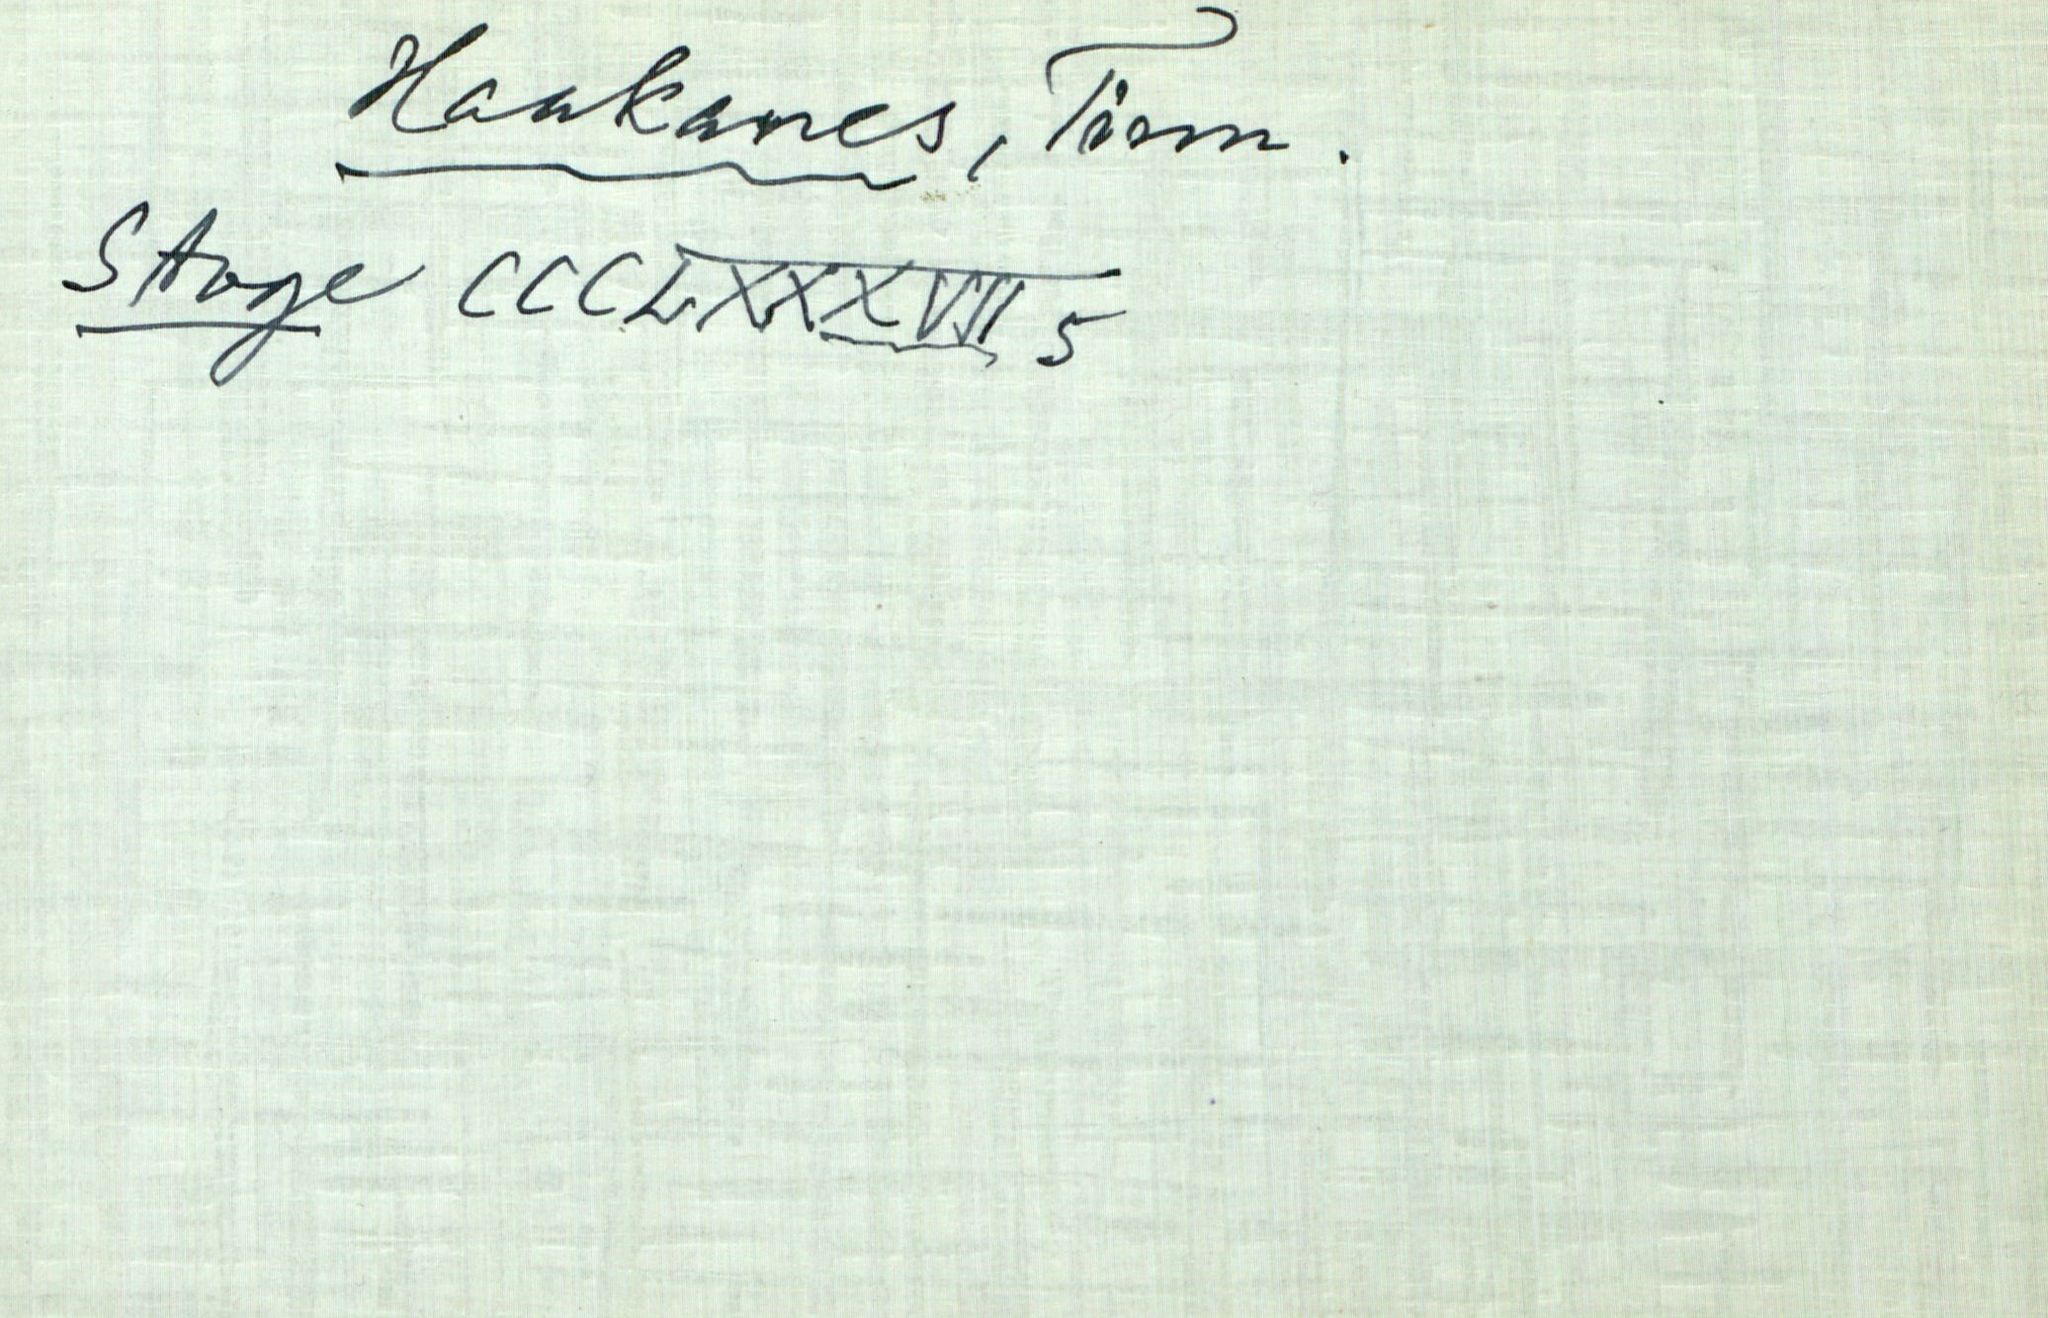 Haukanes, Torm.
Stoge CCCLXXXVII 5